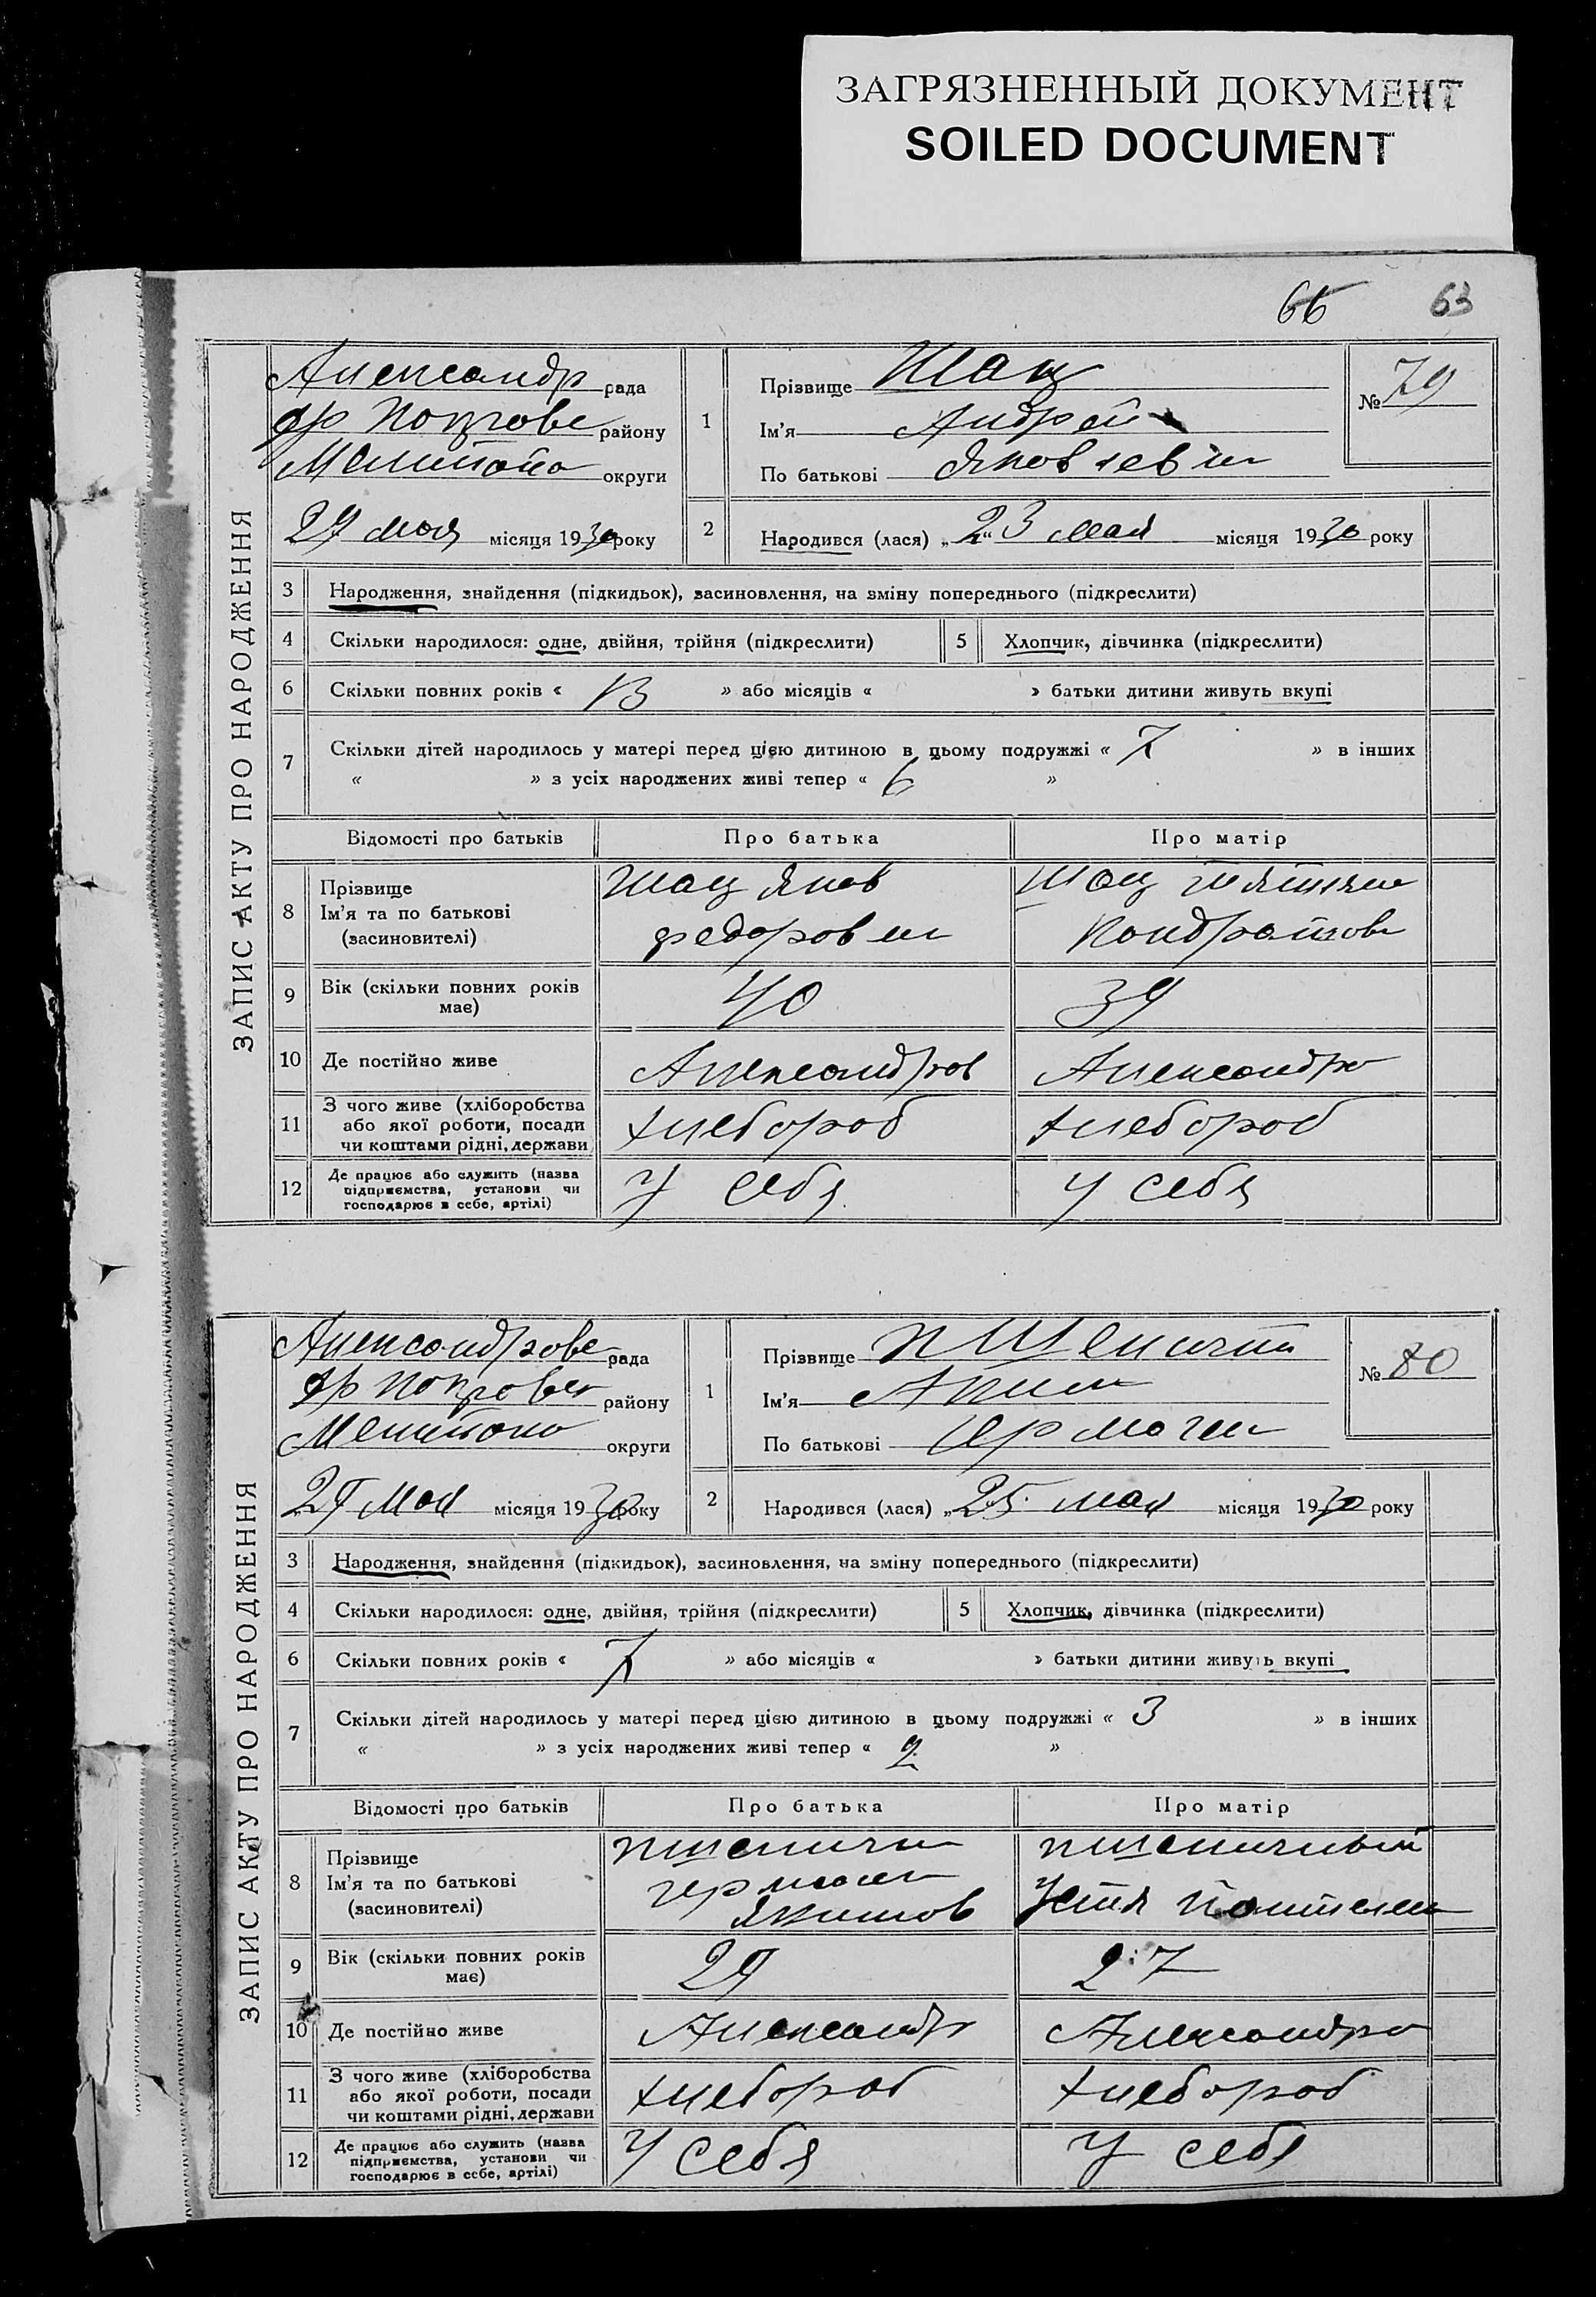 ЗАГРЯЗНЕННЫЙ ДОКУМЕНТ
SOILED DOCUMENT
66 63
ЗАПИС АКТУ ПРО НАРОДЖЕННЯ
Александр рада
района
Мелитопо округи
29 мая місяця 1930 року
1
Прізвище Шац
Ім'я Андрей
По батькові Яковлевич
№ 79
2 Народився (лася) „23“ мая місяця 1930 року
3 Народження, знайдення (підкидьок), засиновлення, на зміну попереднього (підкреслити)
4 Скільки народилося: одне, двійня, трійня (підкреслити) 5 Хлопчик, дівчинка (підкреслити)
6 Скільки повних років « 13 » або місяців « » батьки дитини живуть вкупі
7 Скільки дітей народилось у матері перед цією дитиною в цьому подружжі « 7 » в інших
« » з усіх народжених живі тепер « 6 »
Відомості про батьків Про батька Про матір
8 Прізвище Шац Яков Шац Татьяна
Ім'я та по батькові
(засиновителі) Федорович Кондратов
9 Вік (скільки повних років має) 40 39
10 Де постійно живе Александров Александро
11 З чого живе (хліборобства або якої роботи, посади чи коштами рідні, держави хлебороб хлебороб
12 Де працює або служить (назва підприємства, установи чи господарює в себе, артілі) у себя у себя
ЗАПИС АКТУ ПРО НАРОДЖЕННЯ
Александрове рада
району
Мелитопо округи
29 мая місяця 1930 року
1
Прізвище Пшеничний
Ім'я Аким
По батькові
№ 80
2 Народився (лася) „25 мая місяця 1930 року
3 Народження, знайдення (підкидьок), засиновлення, на зміну попереднього (підкреслити)
4 Скільки народилося: одне, двійня, трійня (підкреслити) 5 Хлопчик, дівчинка (підкреслити)
6 Скільки повних років « 7 » або місяців « » батьки дитини живуть вкупі
7 Скільки дітей народилось у матері перед цією дитиною в цьому подружжі « 3 » в інших
« » з усіх народжених живі тепер « 2 »
Відомості про батьків Про батька Про матір
8 Прізвище Пшенични Пшеничный
Ім'я та по батькові
(засиновителі) Якимов Устя
9 Вік (скільки повних років має) 29 27
10 Де постійно живе Александр Александро
11 З чого живе (хліборобства або якої роботи, посади чи коштами рідні, держави хлебороб хлебороб
12 Де працює або служить (назва підприємства, установи чи господарює в себе, артілі) у себя у себя